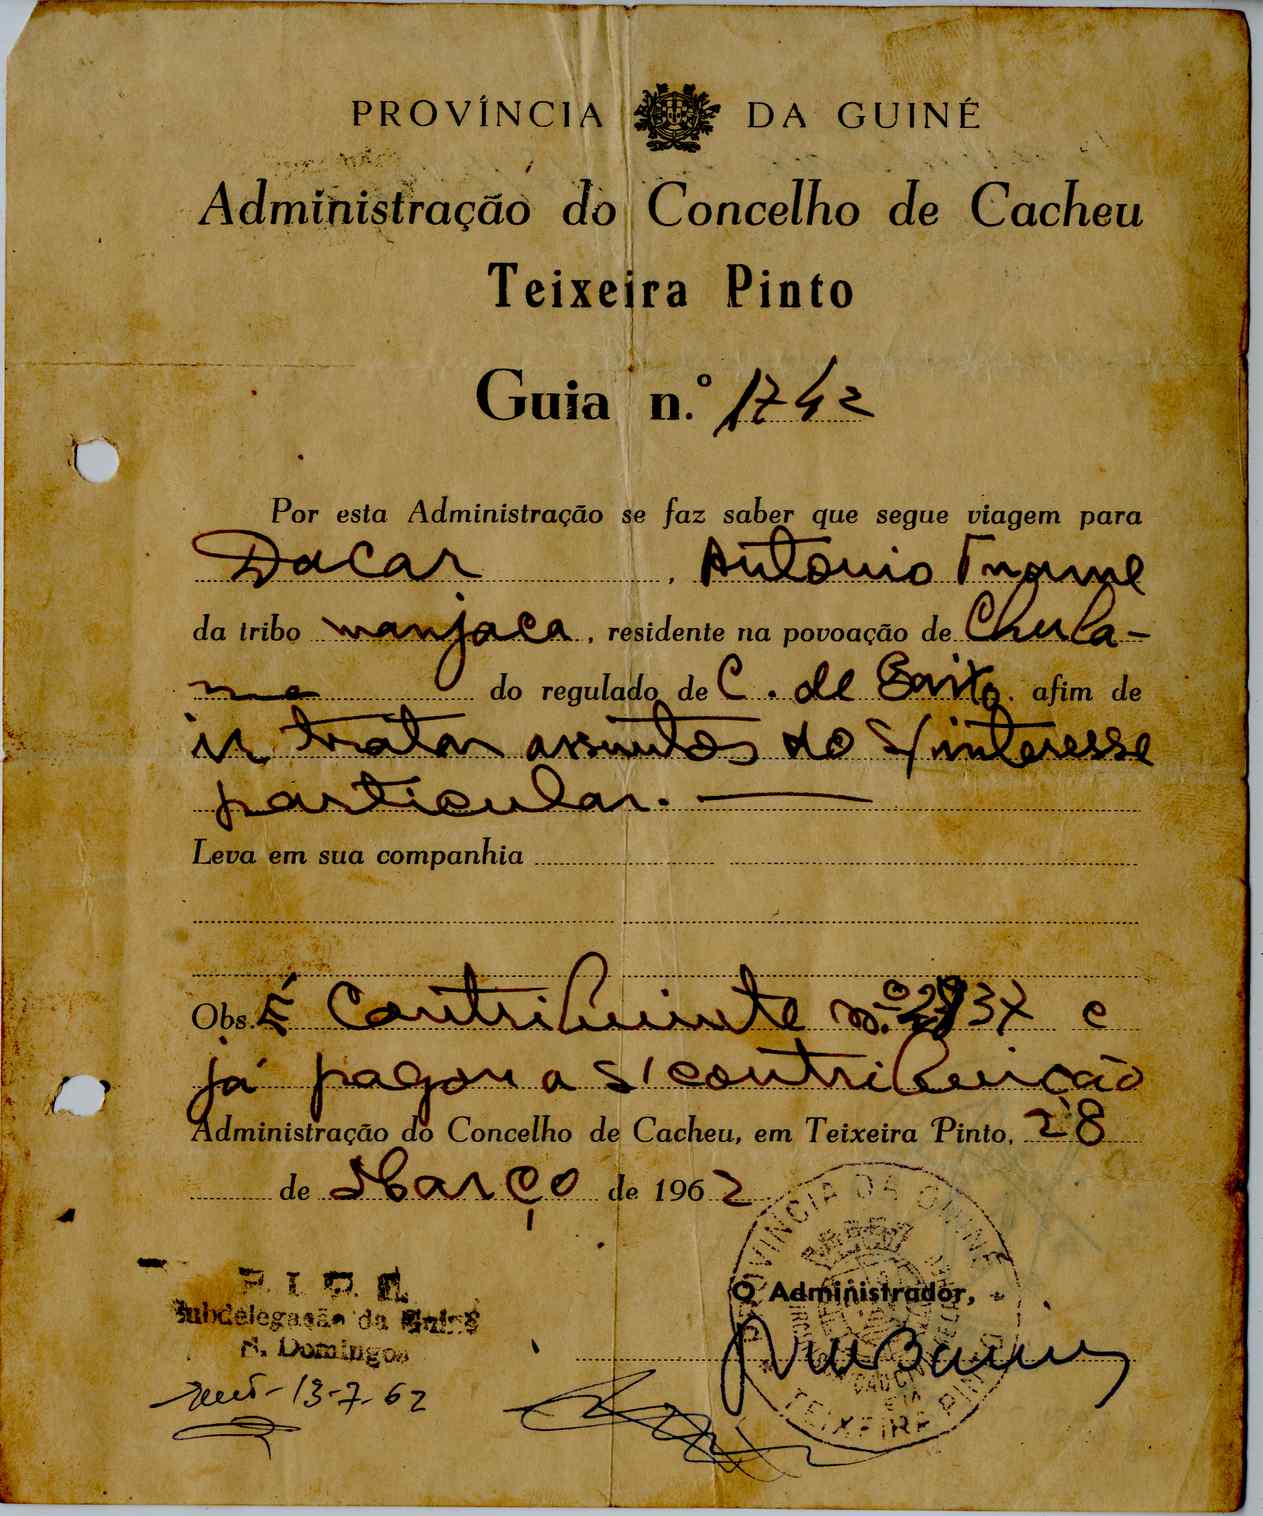 PROVÍNCIA DA GUINÉ
Administração do Concelho de Cacheu
Teixeira Pinto
Guia n.º 1742
Por esta Administração se faz saber que segue viagem para
Dacar, António
da tribo manjaca, residente na povoação de Chula-
me do regulado de C. de Baixo afim de
ir tratar assuntos do s/interesse
particular.
Leva em sua companhia
Obs. É contribuinte n.º e
já pagou a s/contribuição
Administração do Concelho de Cacheu, em Teixeira Pinto, 28
de Março de 1962
PROVINCIA DA GUINÉ
O Administrador,
TEIXEIRA PINTO
P. I. D. E.
Subdelegação da Guiné
S. Domingos
13-7-62